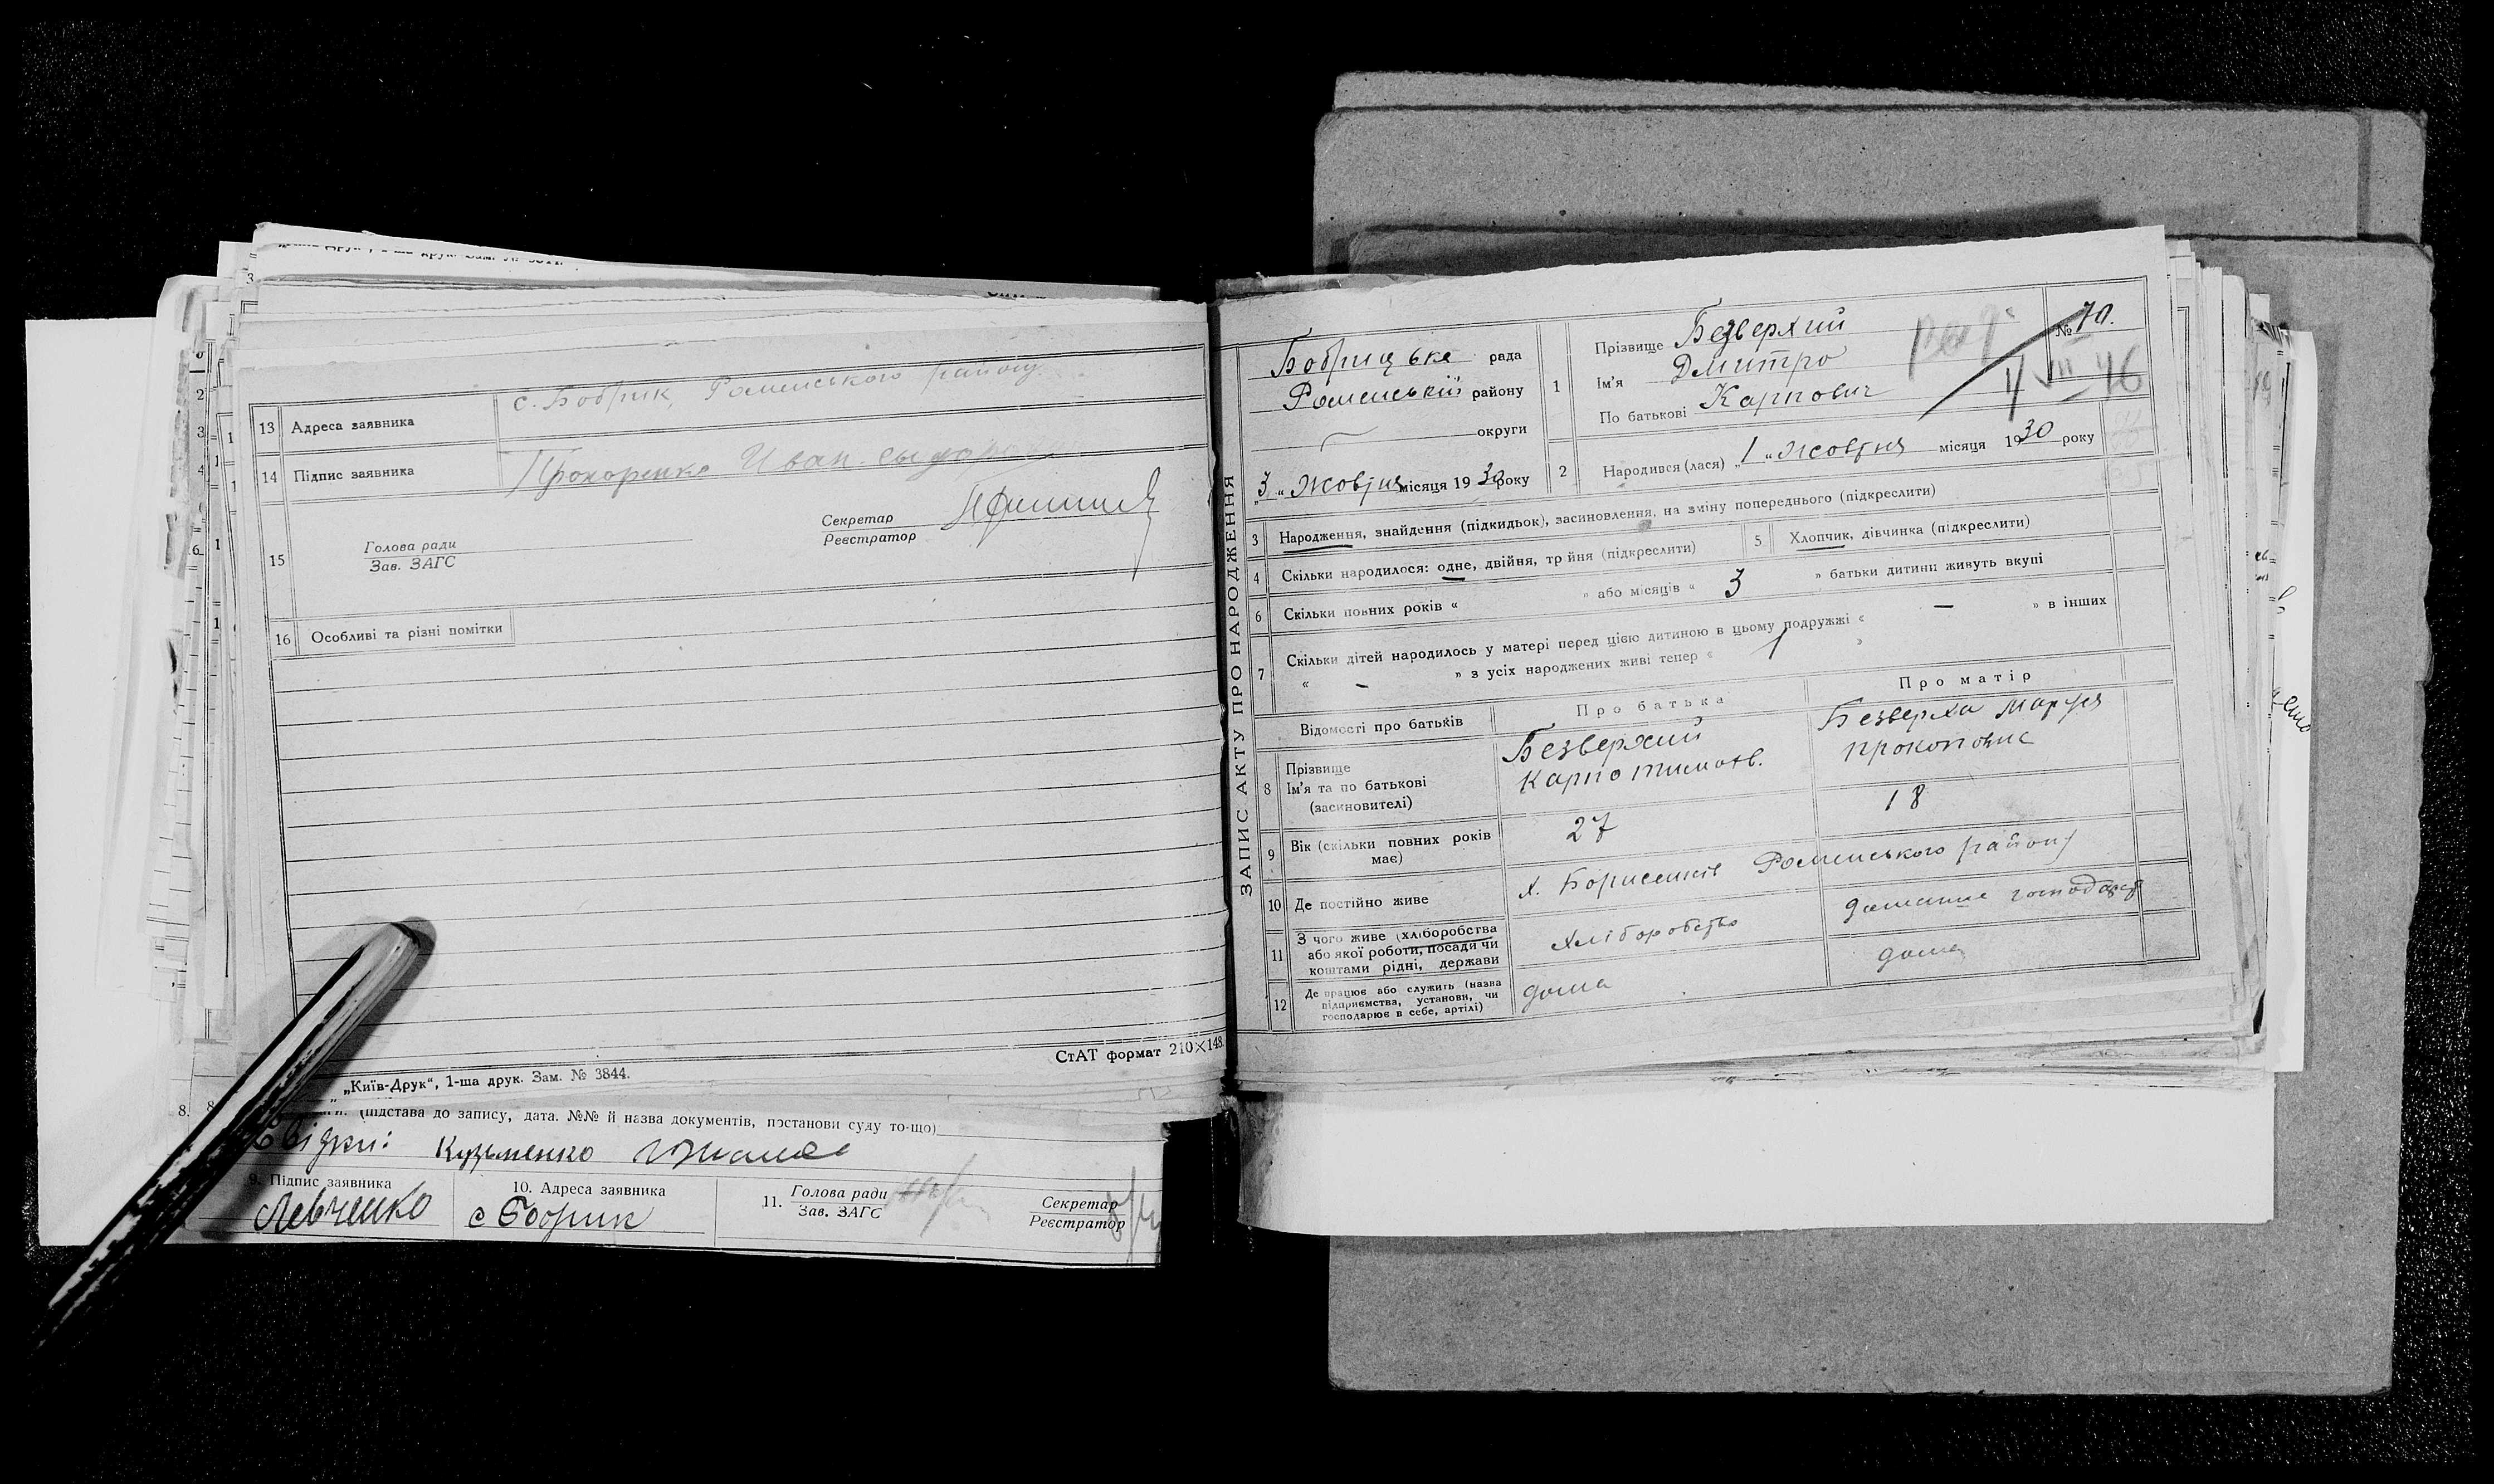 13 Адреса заявника с. Бобрик, Роменського району
14 Підпис заявника Прохоренко Иван
15 Голова ради
Зав. ЗАГС
Секретар
Реєстратор
16 Особливі та різні помітки
СтАТ формат 210×148.
„Київ-Друк“, 1-ша друк. Зам. № 3844.
(підстава до запису, дата. №№ й назва документів, постанови суду то-що)
Свідки: Кузьменко
9. Підпис заявника
Левченко
10. Адреса заявника
с Бобрик
11. Голова ради
Зав. ЗАГС
Секретар
Реєстратор
ЗАПИС АКТУ ПРО НАРОДЖЕННЯ
Бобрицьке рада
Роменський району
округи
„3„ Жовтня місяця 1930 року
1 Прізвище Безверхий
Ім'я Дмитро
По батькові Карпович
№ 70.
4 VIII 46
2 Народився (лася) „1„ Жовтня місяця 1930 року
3 Народження, знайдення (підкидьок), засиновлення, на зміну попереднього (підкреслити)
4 Скільки народилося: одне, двійня, трійня (підкреслити)
5 Хлопчик, дівчинка (підкреслити)
6 Скільки повних років « » або місяців « 3 » батьки дитини живуть вкупі
7 Скільки дітей народилось у матері перед цією дитиною в цьому подружжі « — » в інших
« — » з усіх народжених живі тепер « 1 »
Відомості про батьків
Про батька
Про матір
8 Прізвище
Ім'я та по батькові
(засиновителі)
Безверхий
Карпо тимофв.
Безверха Маруся
Прокоповна
9 Вік (скільки повних років має)
27
18
10 Де постійно живе
х. Борисенків Роменського району
11 З чого живе (хліборобства
або якої роботи, посади чи
коштами рідні, держави
Хліборобство
домашнє господар
12 Де працює або служить (назва
підприємства, установи, чи
господарює в себе, артілі)
дома
дома